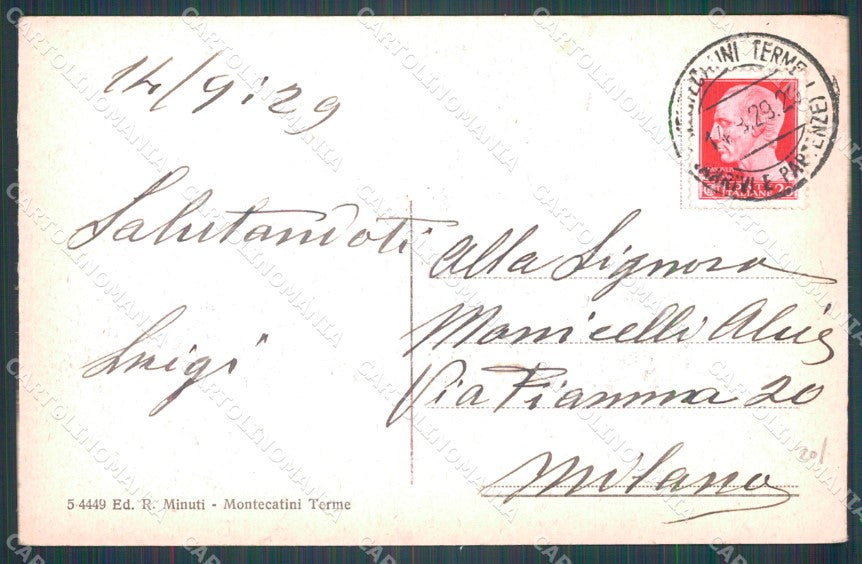 14/9:29
Salutandoti
Luigi
MONTECATINI TERME
ARRIVI E PARTENZE
ITALIANE
Alla Signora
Monicelli
Via Fiamma 20
Milano
201
5-4449 Ed. R. Minuti - Montecatini Terme
CARTOLINOMANIA